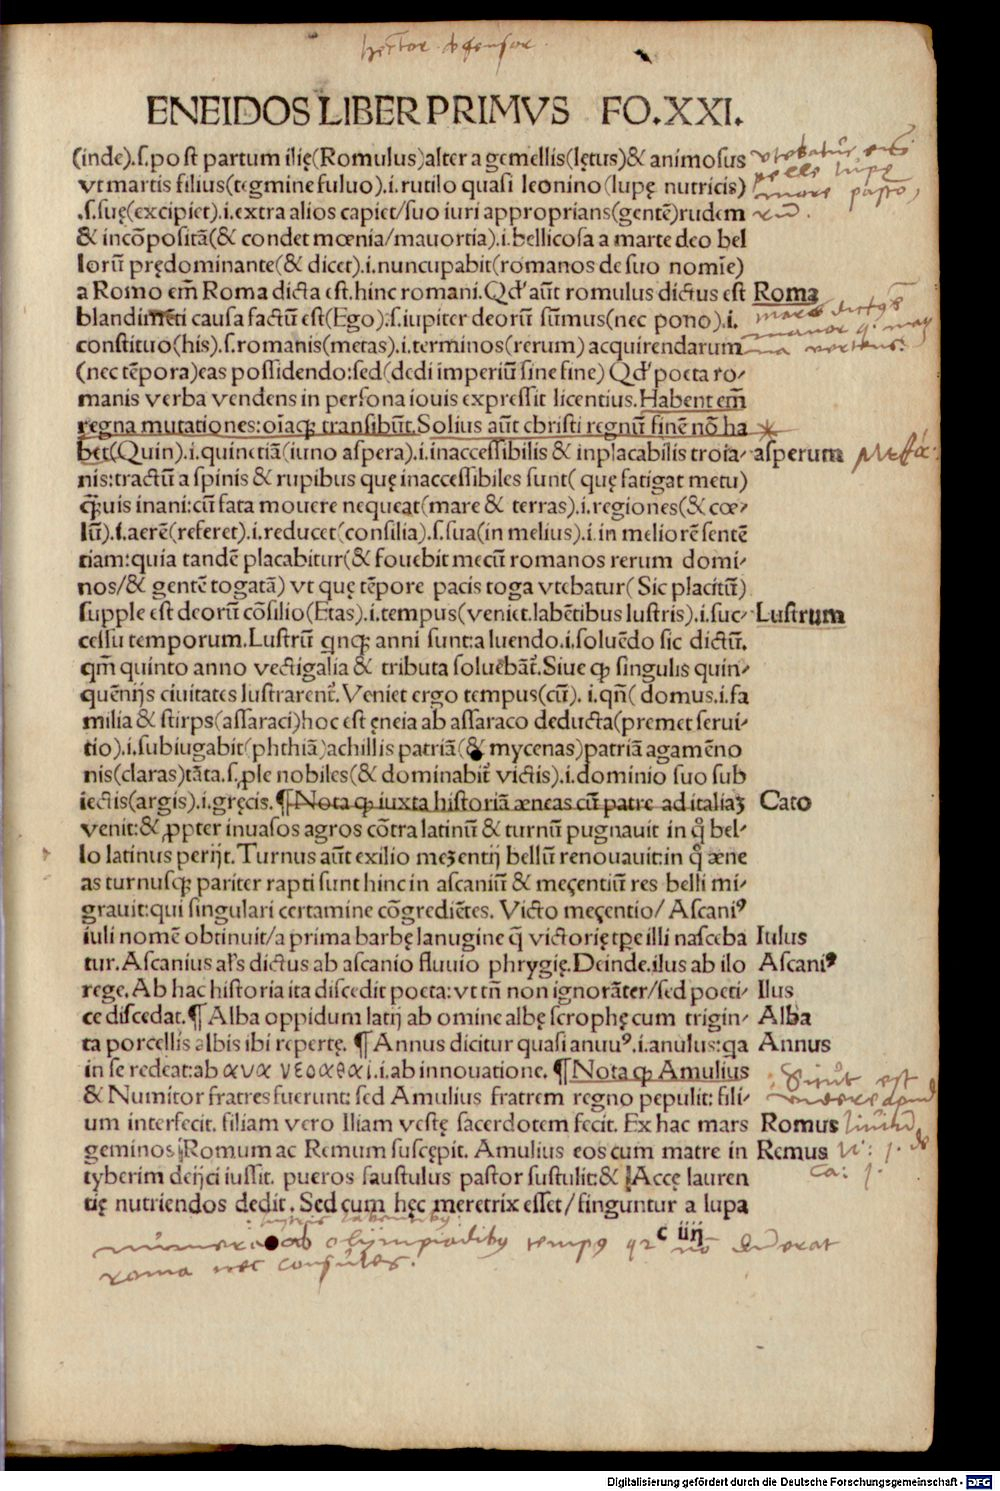 hector defensor
ENEIDOS LIBER PRIMVS FO.XXI.
(inde).ſ.poſt partum ilię(Romulus)alter a gemellis(lętus)& animoſus
vt martis filius(tegmine fuluo).i.rutilo quaſi leonino(lupę nutricis)
.ſ.ſuę(excipiet).i.extra alios capiet/ſuo iuri approprians(gentē)rudem
& incōpoſitā(& condet mœnia/mauortia).i.bellicoſa a marte deo bel
lorū prędominante(& dicet).i.nuncupabit(romanos de ſuo nomīe)
a Romo em̄ Roma dicta eſt.hinc romani.Qd' aūt romulus dictus eſt Roma
blandimēti cauſa factū eſt(Ego).ſ.iupiter deorū ſūmus(nec pono).i.
conſtituo(his).ſ.romanis(metas).i.terminos(rerum) acquirendarum
(nec tēpora)eas poſſidendo:ſed(dedi imperiū ſine fine) Qd' poeta ro-
manis verba vendens in perſona iouis expreſſit licentius.Habent em̄
regna mutationes:oīaqꝫ tranſibūt.Solius aūt chriſti regnū finē nō ha
bet(Quin).i.quinetiā(iuno aſpera).i.inacceſſibilis & inplacabilis troia- asperum
nis:tractū a ſpinis & rupibus quę inacceſſibiles ſunt( quę fatigat metu)
q̄uis inani:cū fata mouere nequeat(mare & terras).i.regiones(& cœ-
lū).ſ.aerē(referet).i.reducet(conſilia).ſ.ſua(in melius).i.in meliorē ſentē
tiam:quia tandē placabitur(& fouebit mecū romanos rerum domi-
nos/& gentē togatā) vt quę tēpore pacis toga vtebatur( Sic placitū)
ſupple eſt deorū cōſilio(Etas).i.tempus(veniet.labētibus luſtris).i.ſuc- Luſtrum
ceſſu temporum.Luſtrū qnqꝫ anni ſunt:a luendo.i.ſoluēdo ſic dictū.
qm̄ quinto anno vectigalia & tributa ſoluebāt.Siue ꝙ ſingulis quin-
quēnijs ciuitates luſtrarent̄.Veniet ergo tempus(cū). i.qn̄( domus.i.fa
milia & ſtirps(aſſaraci)hoc eſt ęneia ab aſſaraco deducta(premet ſerui-
tio).i.ſubiugabit(phthiā)achillis patriā(& mycenas)patriā agamēno
nis(claras)tāta.ſ.ꝓle nobiles(& dominabit̄ victis).i.dominio ſuo ſub
iectis(argis).i.gręcis.¶Nota ꝙ iuxta hiſtoriā æneas cū patre ad italiaꝫ Cato
venit:& ꝓpter inuaſos agros cōtra latinū & turnū pugnauit in q̊ bel-
lo latinus perijt.Turnus aūt exilio meꝫentij bellū renouauit:in q̊ æne
as turnuſqꝫ pariter rapti ſunt hinc in aſcaniū & meçentiū res belli mi-
grauit:qui ſingulari certamine cōgrediētes. Victo meçentio/ Aſcaniꝰ
iuli nomē obtinuit/a prima barbę lanugine q̄ victorię tꝑe illi naſceba Iulus
tur.Aſcanius al's dictus ab aſcanio fluuio phrygię.Deinde.ilus ab ilo Aſcaniꝰ
rege.Ab hac hiſtoria ita diſcedit poeta:vt tn̄ non ignorāter/ſed poeti- Ilus
ce diſcedat.¶ Alba oppidum latij ab omine albę ſcrophę cum trigin- Alba
ta porcellis albis ibi repertę. ¶ Annus dicitur quaſi anuuꝰ.i.anulus:qa Annus
in ſe redeat:ab ανα νεοαθαι.i.ab innouatione. ¶Nota ꝙ Amulius
& Numitor fratres fuerunt: ſed Amulius fratrem regno pepulit: fili-
um interfecit. filiam vero Iliam veſtę ſacerdotem fecit. Ex hac mars Romus
geminos Romum ac Remum ſuſcępit. Amulius eos cum matre in Remus
tyberim deijci iuſſit. pueros fauſtulus paſtor ſuſtulit:& Accę lauren
tię nutriendos dedit. Sed cum hęc meretrix eſſet/finguntur a lupa
c iiij
ab olijmpiadibus tempus
roma nec consules.
Digitalisierung gefördert durch die Deutsche Forschungsgemeinschaft - DFG